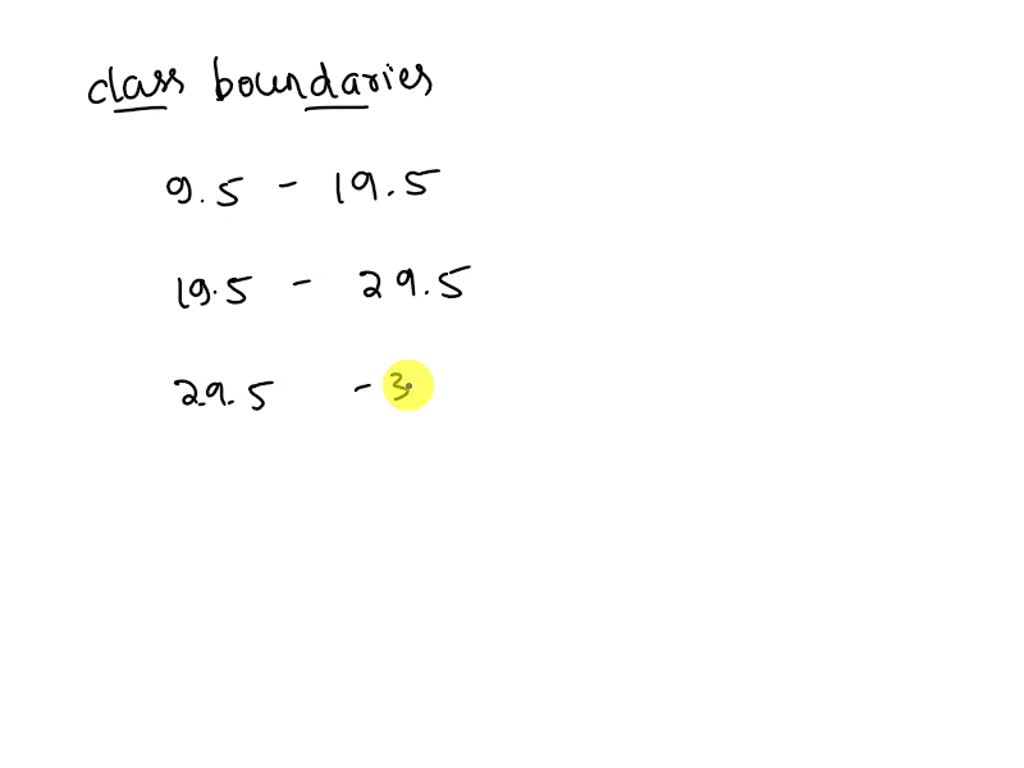 class boundaries
9.5 - 19.5
19.5 - 29.5
29.5 - 3